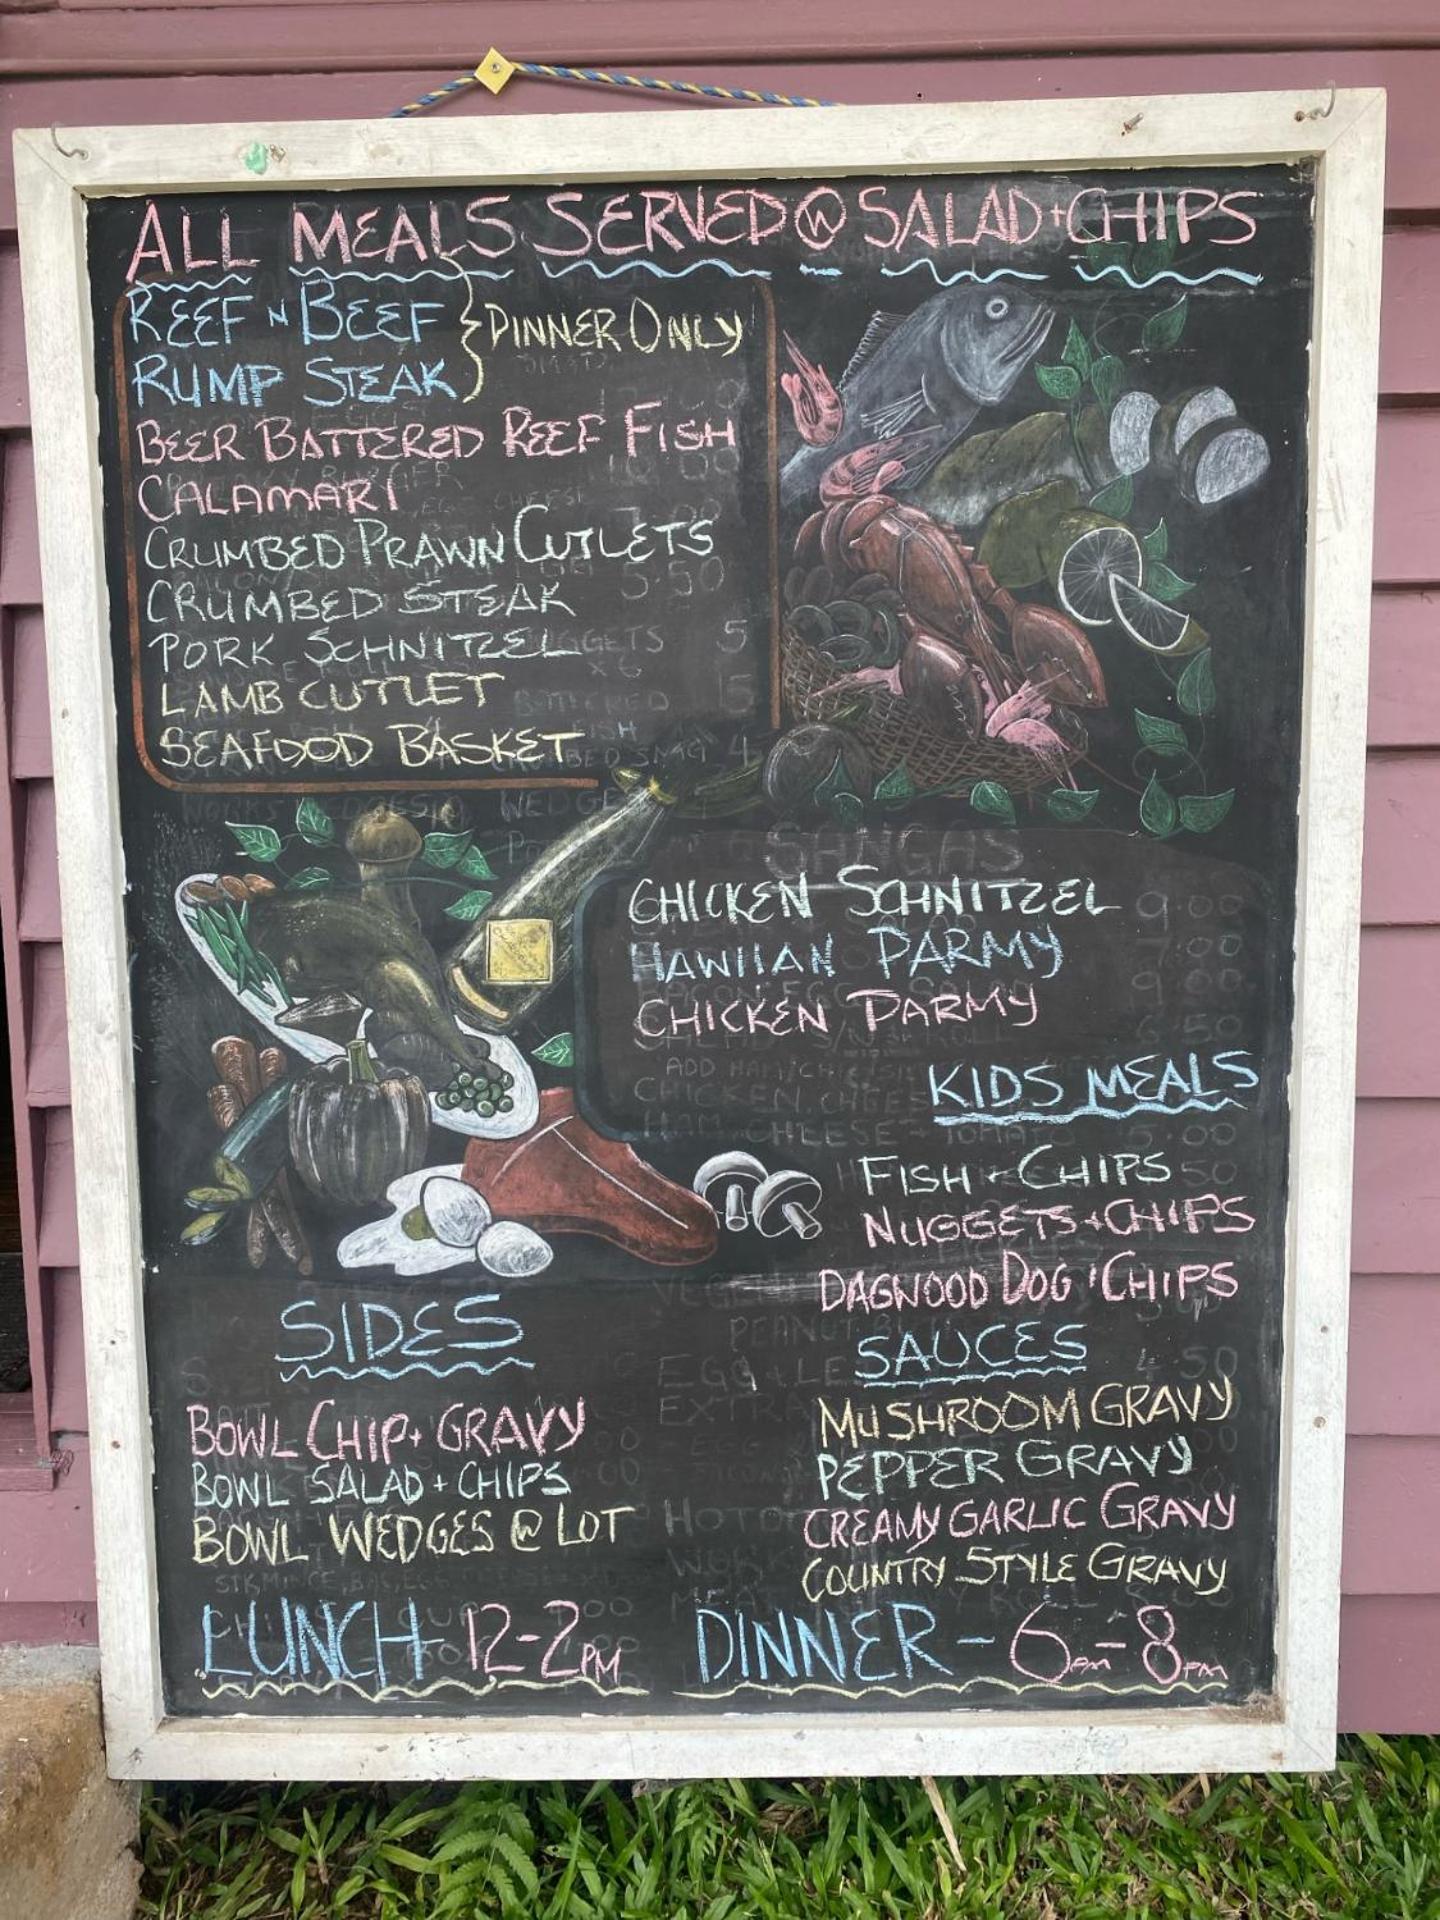 ALL MEALS SERVED @ SALAD + CHIPS
REEF N BEEF
RUMP STEAK
DINNER ONLY
BEER BATTERED REEF FISH
CALAMARI
CRUMBED PRAWN CUTLETS
CRUMBED STEAK
PORK SCHNITZEL
LAMB CUTLET
SEAFOOD BASKET
SANGAS
CHICKEN SCHNITZEL
HAWIIAN PARMY
CHICKEN PARMY
KIDS MEALS
FISH + CHIPS
NUGGETS + CHIPS
DAGWOOD DOG + CHIPS
SIDES
BOWL CHIP + GRAVY
BOWL SALAD + CHIPS
BOWL WEDGES @ LOT
SAUCES
MUSHROOM GRAVY
PEPPER GRAVY
CREAMY GARLIC GRAVY
COUNTRY STYLE GRAVY
LUNCH 12-2PM
DINNER - 6PM-8PM